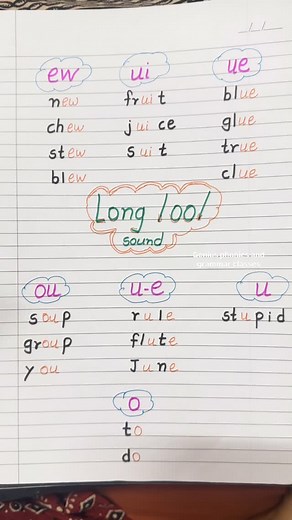 ew ui ue
new fruit blue
chew juice glue
stew suit true
blew clue
Long /oo/
sound
ou u-e u
soup rule stupid
group flute
you June
o
to
do